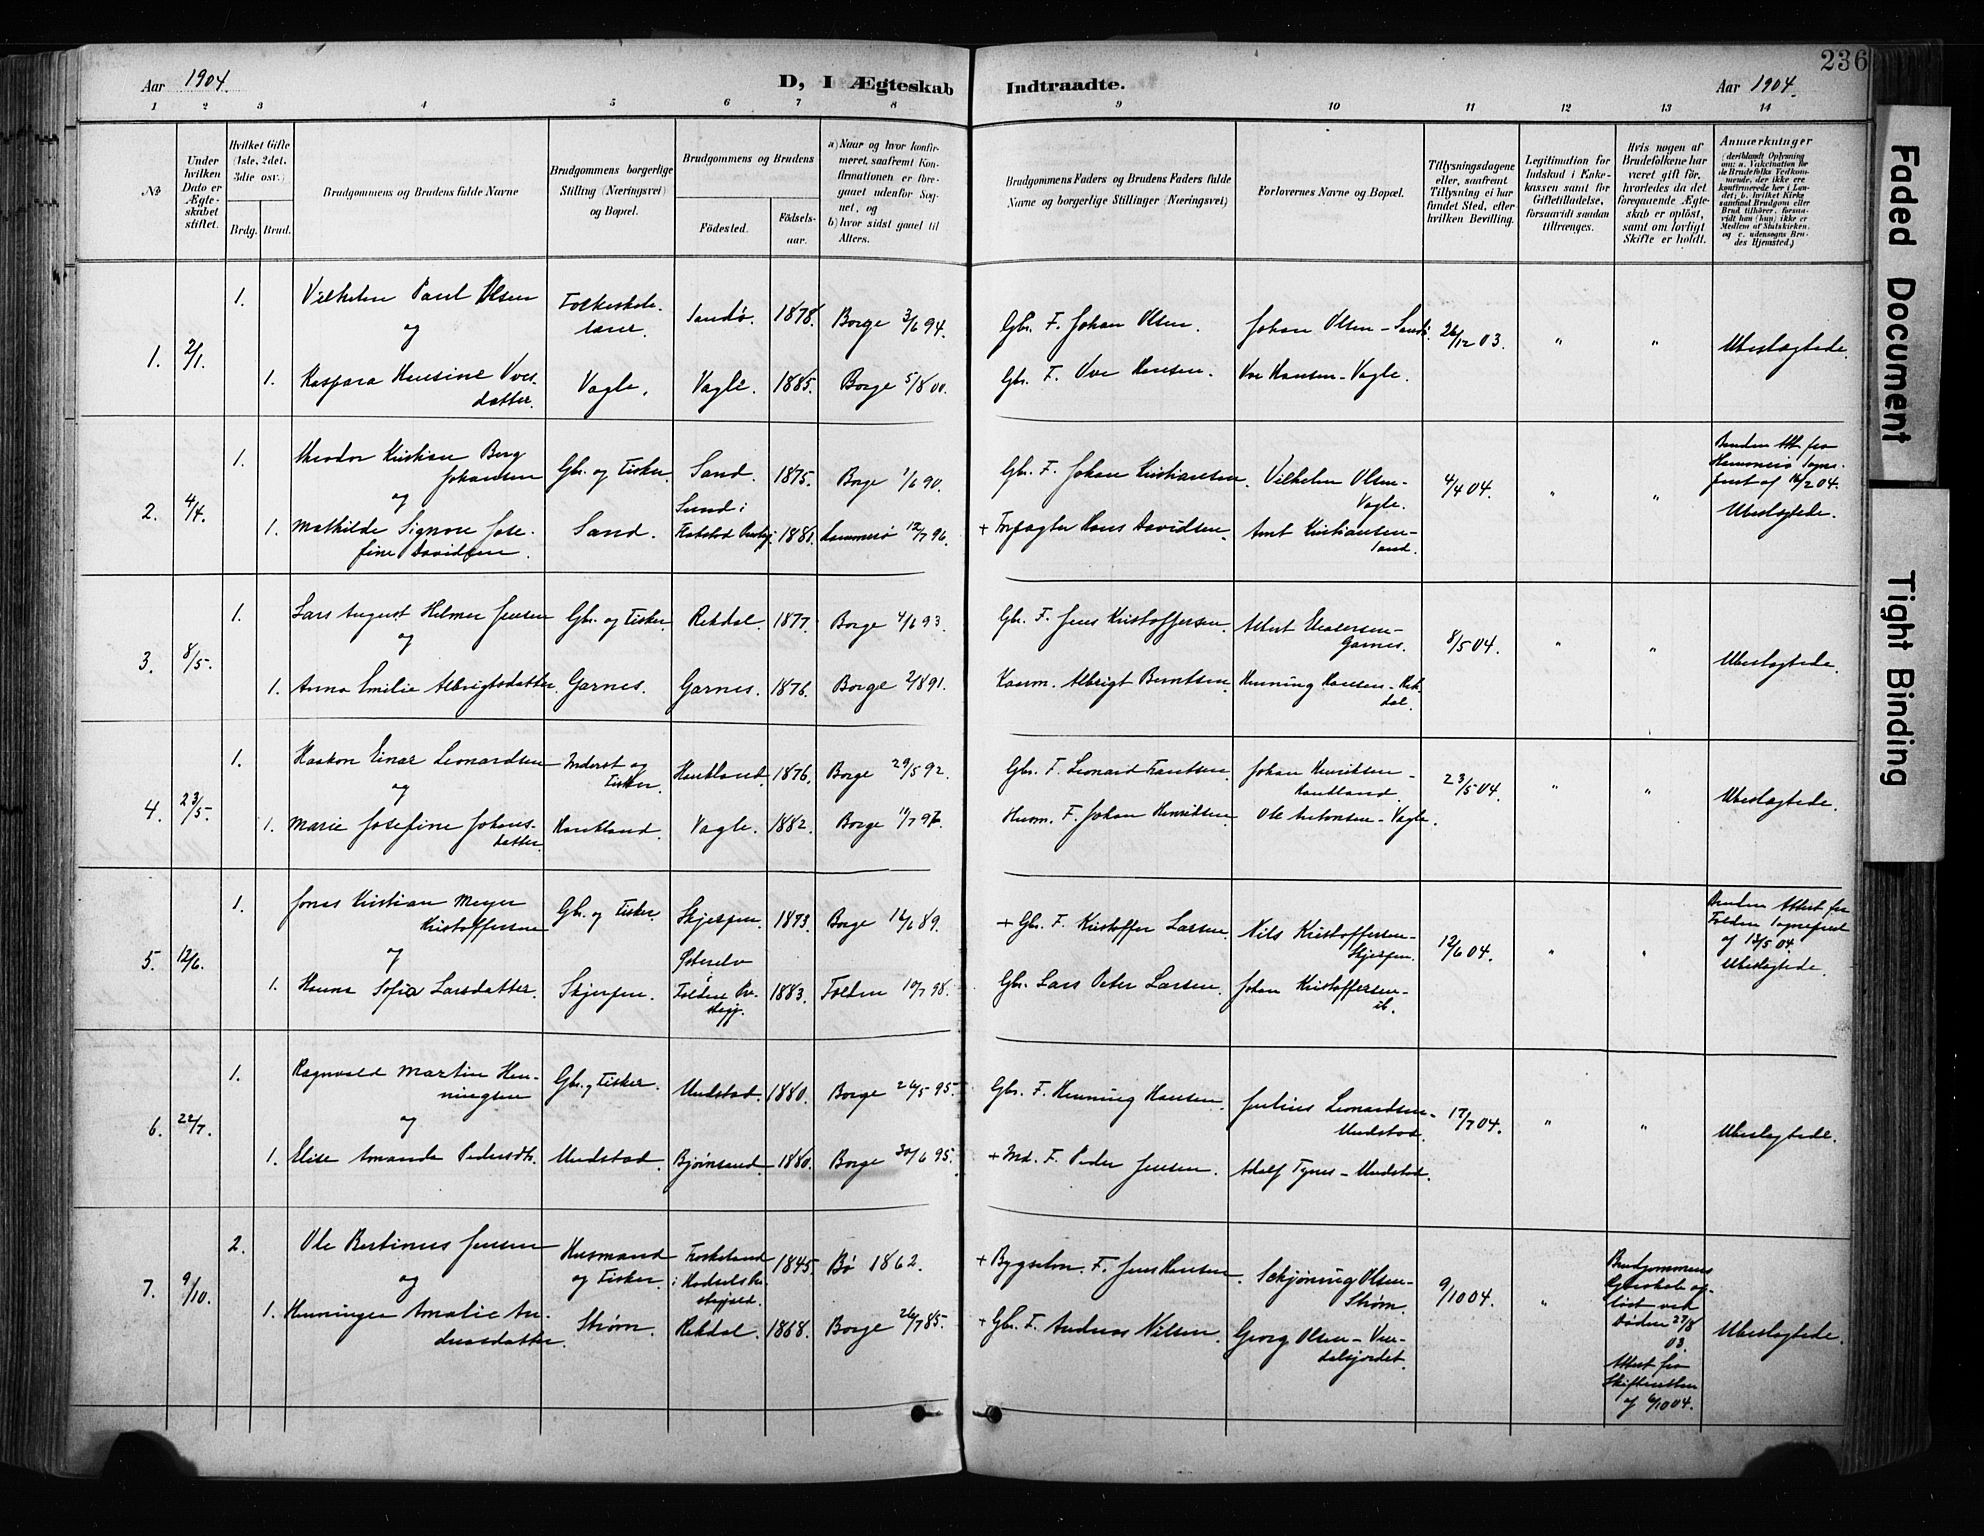 236
Aar 1904.
D, I Ægteskab Indtraadte.
Aar 1904.
1 2 3 4 5 6 7 8 9 10 11 12 13 14
No
Under hvilken Dato er Ægteskabet stiftet.
Hvilket Gifte (1ste, 2det, 3die osv.)
Brdg. Brud.
Brudgommens og Brudens fulde Navne
Brudgommens borgerlige Stilling (Næringsvei) og Bopæl.
Brudgommens og Brudens
Födested.
Födselsaar.
a) Naar og hvor konfirmeret, saafremt Konfirmationen er foregaaet udenfor Sognet, og
b) hvor sidst gaaet til Alters.
Brudgommens Faders og Brudens Faders fulde Navne og borgerlige Stillinger (Næringsvei)
Forlovernes Navne og Bopæl.
Tillysningsdagene eller, saafremt Tillysning ei har fundet Sted, efter hvilken Bevilling.
Legitimation for Indskud i Enkekassen samt for Giftetilladelse, forsaavidt saadan tiltrænges.
Hvis nogen af Brudefolkene har været gift för, hvorledes da det foregaaende Ægteskab er oplöst, samt om lovligt Skifte er holdt.
Anmerkninger
(deriblandt Oplysning om: a. Vakcination for de Brudefolks Vedkommende, der ikke ere konfirmerede her i Landet; b. hvilket Kirkesamfund Brudgom eller Brud tilhörer, forsaavidt han (hun) ikke er Medlem af Statskirken, og c. udensogns Brudes Hjemsted.)
1. 2/1.
1. Vilhelm Paul Olsen Folkeskolelærer. Sandö. 1878. Borge 3/6 94. Gbr. F. Johan Olsen. Johan Olsen - Sandö. 26/12 03. " " Ubeslægtede.
og
1. Kaspara Hansine Uvesdatter. Vagle. Vagle. 1885. Borge 5/8 00. Gbr. F. Uve Hansen. Uve Hansen - Vagle.
2. 4/4.
1. Theodor Kristian Berg Johansen Gbr. og Fisker. Sand. 1875. Borge 1/6 90. Gbr. F. Johan Kristiansen. Vilhelm Olsen - Vagle. 4/4 04. " " Bruden Att. fra Hammerö Sogneprest af 16/2 04. Ubeslægtede.
og
1. Mathilde Signore Josefine Davidsen. Sand. Sund i 1881. Hammerö 12/7 96. + Forpagter Hans Davidsen. Arnt Kristiansen - Sand.
3. 8/5.
1. Lars August Helmer Jensen Gbr. og Fisker. Rekdal. 1877. Borge 4/6 93. Gbr. F. Jens Kristoffersen. Albert Garnes. 8/5 04. " " Ubeslægtede.
og
1. Anna Emilie Albrigtsdatter. Garnes. Garnes. 1876. Borge 2/8 91. Albrigt Berntsen. Henning Hansen - Rekdal.
4. 23/5.
1. Haakon Einar Leonardsen Inderst og Fisker. Hautland. 1876. Borge 29/5 92. Gbr. F. Leonard Frantsen. Johan Henriksen - Hautland. 23/5 04. " " Ubeslægtede.
og
1. Marie Josefine Johansdatter. Hautland. Vagle. 1882. Borge 11/7 97. Husm. F. Johan Henriksen. Ole Antonsen - Vagle.
5. 12/6.
1. Jonas Kristian Meyer Kristoffersen Gbr. og Fisker. Skjerpen. 1873. Borge 16/6 89. + Gbr. F. Kristoffer Larsen. Nils Kristoffersen - Skjerpen. 12/6 04. " " Bruden Attest fra Folden Sogneprest af 13/5 04. Ubeslægtede.
og
1. Hanna Sofia Larsdatter. Skjerpen. i Folden Prestegj. 1883. Folden 10/7 98. Gbr. Lars Peter Larsen. Johan Kristoffersen - ib.
6. 22/7.
1. Ragnvald Martin Henningsen Gbr. og Fisker. Unstad. 1880. Borge 26/5 95. Gbr. F. Henning Hansen. Julius Leonardsen - Unstad. 17/7 04. " " Ubeslægtede.
og
1. Elise Amanda Pedersdtr. Unstad. Bjørnsand. 1880. Borge 30/6 95. + Md. F. Peder Jensen. Adolf Tynes - Unstad.
7. 9/10.
2. Ole Bertinus Jensen Husmand og Fisker. Frøskeland i Hadsels Prestegjeld. 1845. Bö 1862. + Bygselm. F. Jens Hansen. Schjöning Olsen - Ström. 9/10 04. " Brudgommens Ægteskab oplöst ved Döden 27/8 03. Attest fra Skifteretten af 6/10 04. Ubeslægtede.
og
1. Henninger Amalie Andreasdatter. Ström. Rekdal. 1868. Borge 26/7 85. + Gbr. F. Andreas Nilsen. Georg Olsen -
Faded Document
Tight Binding